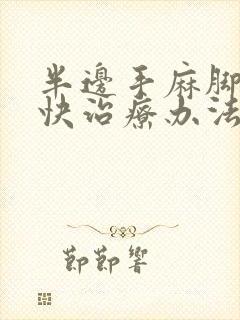 半邊手麻脚
快治療办法
節節響